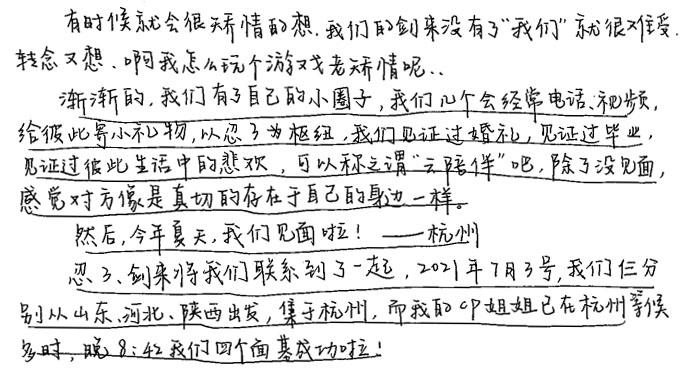 有时候就会很矫情的想.我们的剑来没有了"我们"就很难受.
转念又想、啊我怎么玩个游戏老矫情呢..
渐渐的,我们有了自己的小圈子,我们几个会经常电话、视频,
给彼此寄小礼物,以忍3为枢纽,我们见证过婚礼,见证过毕业,
见证过彼此生活中的悲欢,可以称之谓"云陪伴"吧,除了没见面,
感觉对方像是真切的存在于自己的身边一样。
然后,今年夏天,我们见面啦!——杭州
忍3、剑来将我们联系到了一起,2021年7月3号,我们仨分
别从山东、河北、陕西出发,集于杭州,而我的CP姐姐已在杭州等候
多时,晚8:42我们四个面基成功啦!